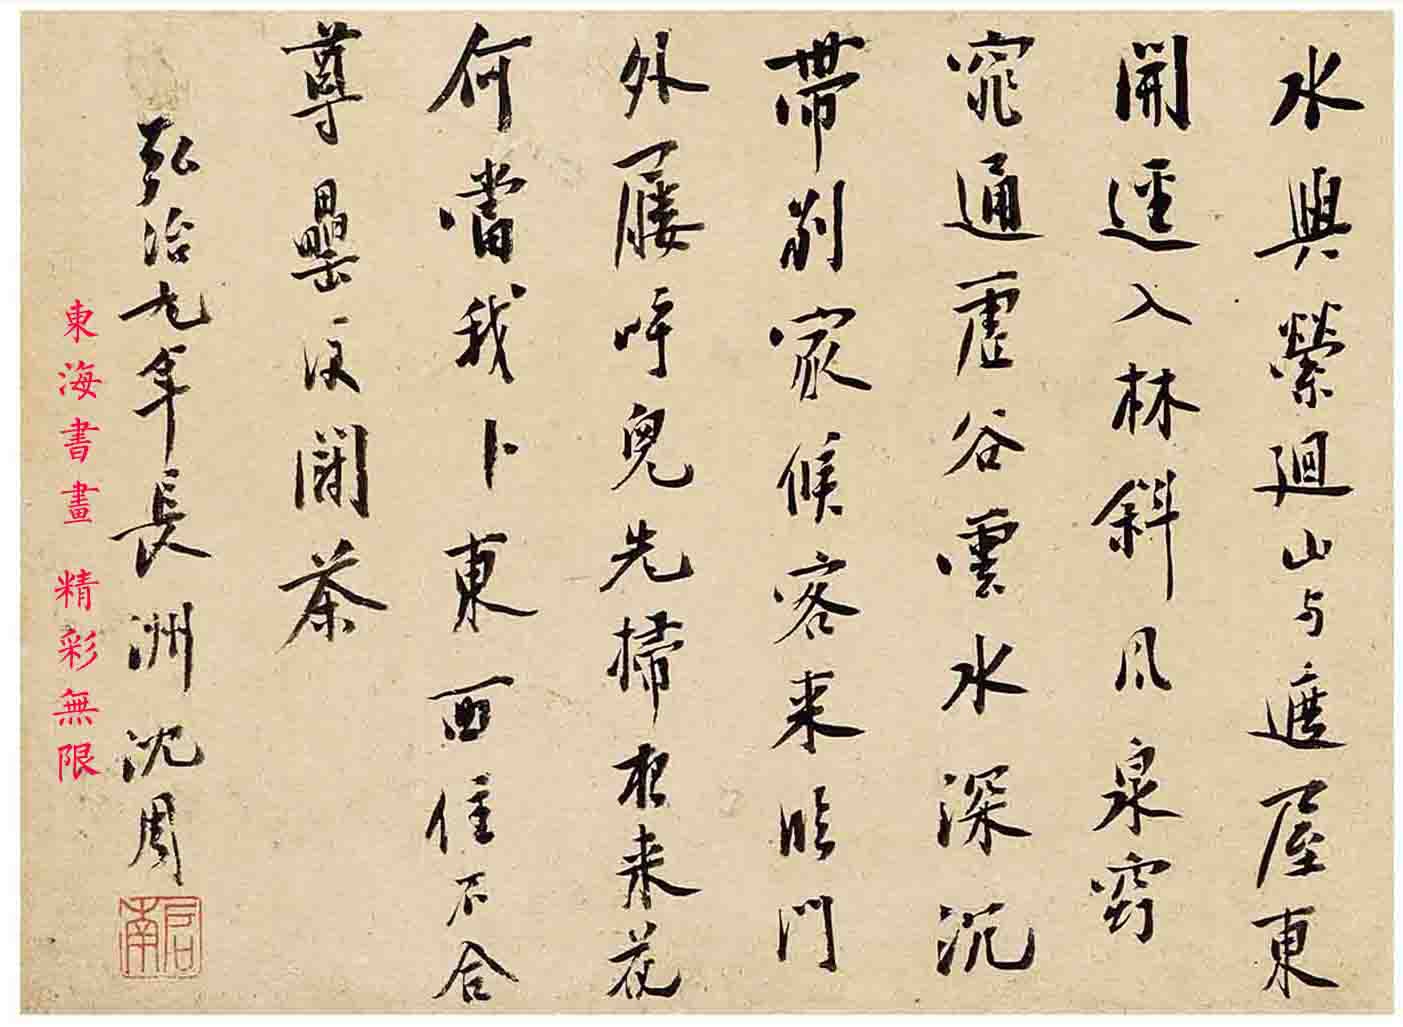 水與縈迴山与遮屋東
開逕入林斜風泉窈
窕通虛谷雲水深沉
帶別家候客来臨門
外屨呼兒先掃夜来花
何當我卜東西住不合
尊罍鬪茶
弘治九年長洲沈周
啟南
東海書畫 精彩無限